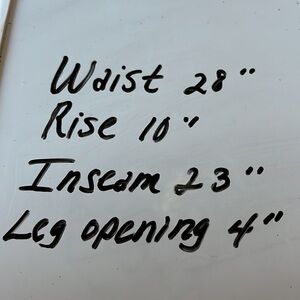 Waist 28"
Rise 10"
Inseam 23"
Leg opening 4"